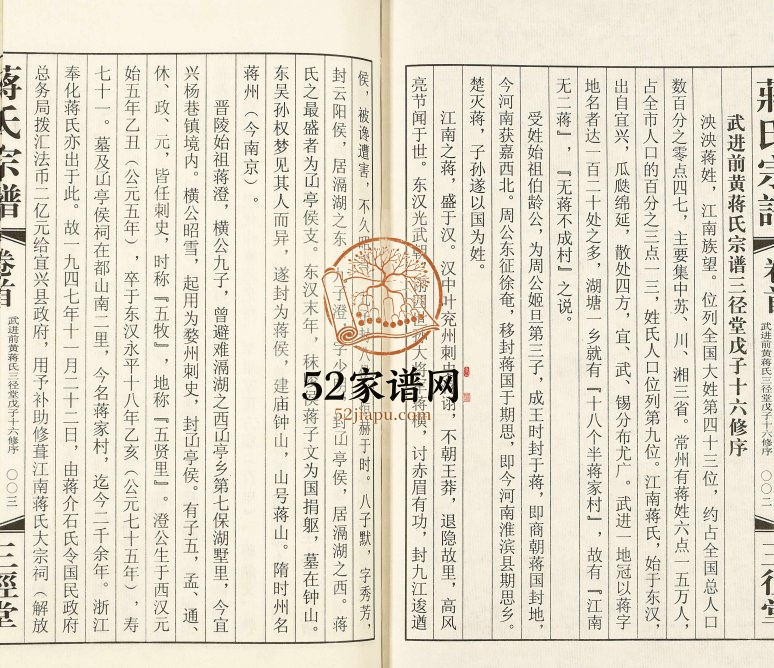 蔣氏宗譜
卷首
武进前黄蒋氏三径堂戊子十六修序
〇〇二
三徑堂
武进前黄蒋氏宗谱三径堂戊子十六修序
泱泱蒋姓，江南族望。位列全国大姓第四十三位，约占全国总人口
数百分之零点四七，主要集中苏、川、湘三省。常州有蒋姓六点一五万人，
占全市人口的百分之三点一三，姓氏人口位列第九位。江南蒋氏，始于东汉，
出自宜兴，瓜瓞绵延，散处四方，宜、武、锡分布尤广。武进一地冠以蒋字
地名者达一百二十处之多，湖塘一乡就有『十八个半蒋家村』，故有『江南
无二蒋』，『无蒋不成村』之说。
受姓始祖伯龄公，为周公姬旦第三子，成王时封于蒋，即商朝蒋国封地，
今河南获嘉西北。周公东征徐奄，移封蒋国于期思，即今河南淮滨县期思乡。
楚灭蒋，子孙遂以国为姓。
江南之蒋，盛于汉。汉中叶兖州刺 诩，不朝王莽，退隐故里，高风
亮节闻于世。东汉光武朝 大将 蒋横，讨赤眉有功，封九江逡遒
侯，被谗遭害，不久 赫于时。八子默，字秀芳，
封云阳侯，居滆湖之东 九子澄 字少 封 亭侯，居滆湖之西。蒋
氏之最盛者为 亭侯支。东汉末年，秣 蒋子文为国捐躯，墓在钟山。
东吴孙权梦见其人而异，遂封为蒋侯，建庙钟山，山号蒋山。隋时州名
蒋州（今南京）。
晋陵始祖蒋澄，横公九子，曾避难滆湖之西 亭乡第七保湖墅里，今宜
兴杨巷镇境内。横公昭雪，起用为婺州刺史，封 亭侯。有子五，孟、通、
休、政、元，皆任刺史，时称『五牧』，地称『五贤里』。澄公生于西汉元
始五年乙丑（公元五年），卒于东汉永平十八年乙亥（公元七十五年），寿
七十一。墓及 亭侯祠在都山南二里，今名蒋家村，迄今二千余年。浙江
奉化蒋氏亦出于此。故一九四七年十一月二十二日，由蒋介石氏令国民政府
总务局拨汇法币二亿元给宜兴县政府，用予补助修葺江南蒋氏大宗祠（解放
蔣氏宗譜
卷首
武进前黄蒋氏三径堂戊子十六修序
〇〇三
三徑堂
52家谱网
52jiapu.com